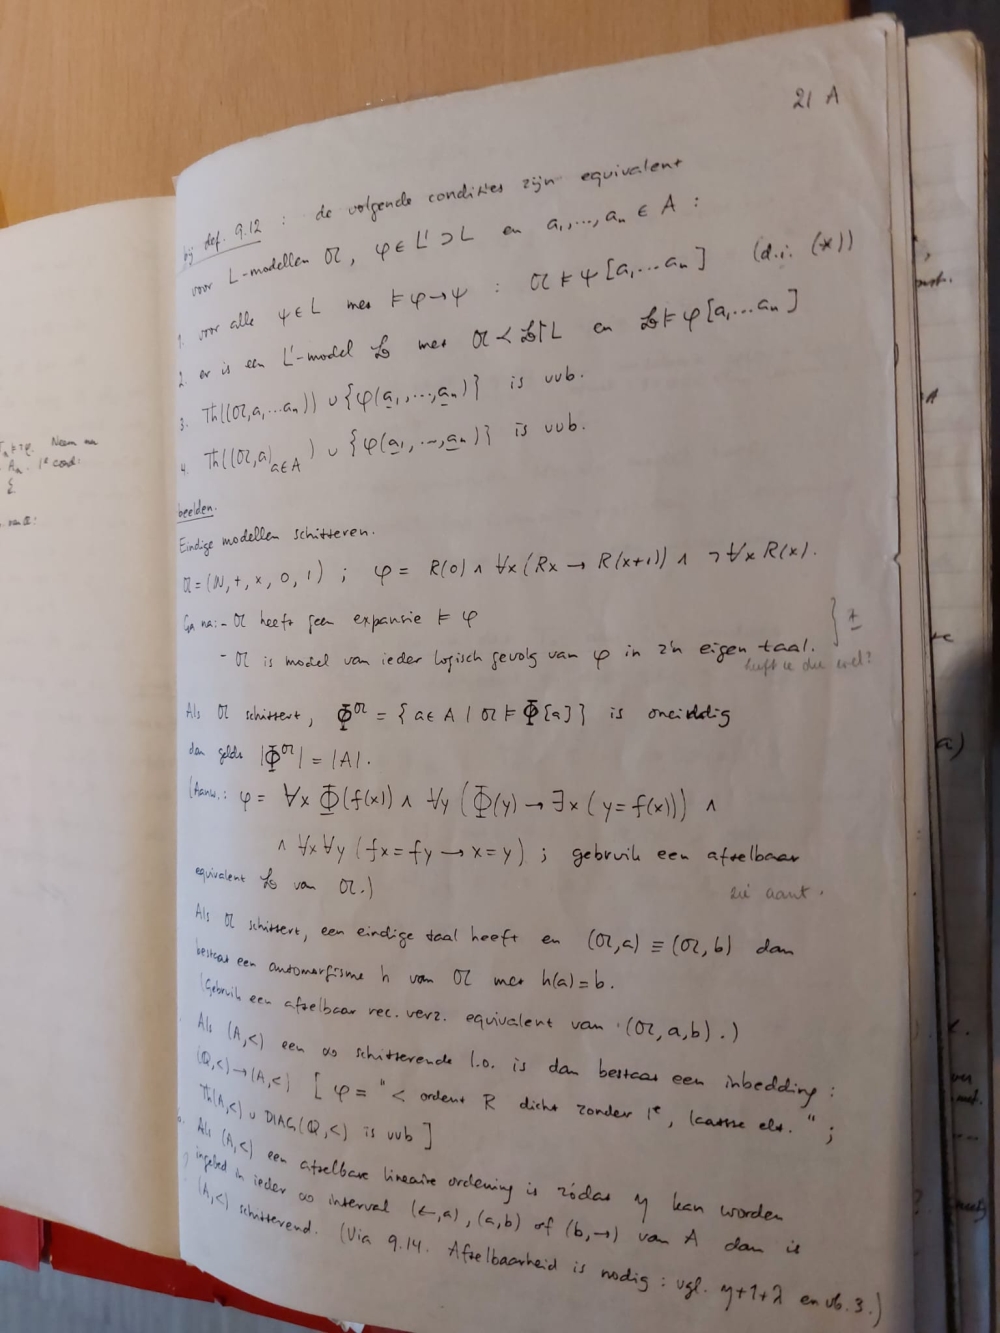 21 A
bij def. 9.12 : de volgende condities zijn equivalent
voor L-modellen 𝔄, φ ∈ L' ⊃ L en a₁,...,aₙ ∈ A :
1. voor alle ψ ∈ L met ⊨ φ → ψ : 𝔄 ⊨ ψ [a₁...aₙ] (d.i. (*))
2. er is een L'-model 𝔅 met 𝔄 ≺ 𝔅↾L en 𝔅 ⊨ φ [a₁...aₙ]
3. Th((𝔄,a₁...aₙ)) ∪ {φ(a₁,...,aₙ)} is vvb.
4. Th((𝔄,a)a∈A) ∪ {φ(a₁,...,aₙ)} is vvb.
beelden.
Eindige modellen schitteren.
𝔄 = (ℕ, +, ×, 0, 1) ; φ = R(0) ∧ ∀x (Rx → R(x+1)) ∧ ¬∀x R(x).
Ga na: - 𝔄 heeft geen expansie ⊨ φ
- 𝔄 is model van ieder logisch gevolg van φ in z'n eigen taal.
heeft ie die wel?
Als 𝔄 schittert, Φ^𝔄 = {a ∈ A | 𝔄 ⊨ Φ[a]} is oneindig
dan geldt |Φ^𝔄| = |A|.
(Aanw.: φ = ∀x Φ(f(x)) ∧ ∀y (Φ(y) → ∃x (y = f(x))) ∧
∧ ∀x∀y (fx = fy → x = y) ; gebruik een aftelbaar
equivalent 𝔅 van 𝔄.)
zie aant.
Als 𝔄 schittert, een eindige taal heeft en (𝔄,a) ≡ (𝔄,b) dan
bestaat een automorfisme h van 𝔄 met h(a) = b.
(Gebruik een aftelbaar rec. verz. equivalent van (𝔄,a,b).)
Als (A,<) een ∞ schitterende l.o. is dan bestaat een inbedding :
(ℚ,<) → (A,<) [ φ = " < ordent R dicht zonder 1ᵉ, laatste elt. " ;
Th(A,<) ∪ DIAG(ℚ,<) is vvb ]
6. Als (A,<) een aftelbare lineaire ordening is zódat η kan worden
ingebed in ieder ∞ interval (←,a), (a,b) of (b,→) van A dan is
(A,<) schitterend. (Via 9.14. Aftelbaarheid is nodig : vgl. η+1+λ en vb. 3.)